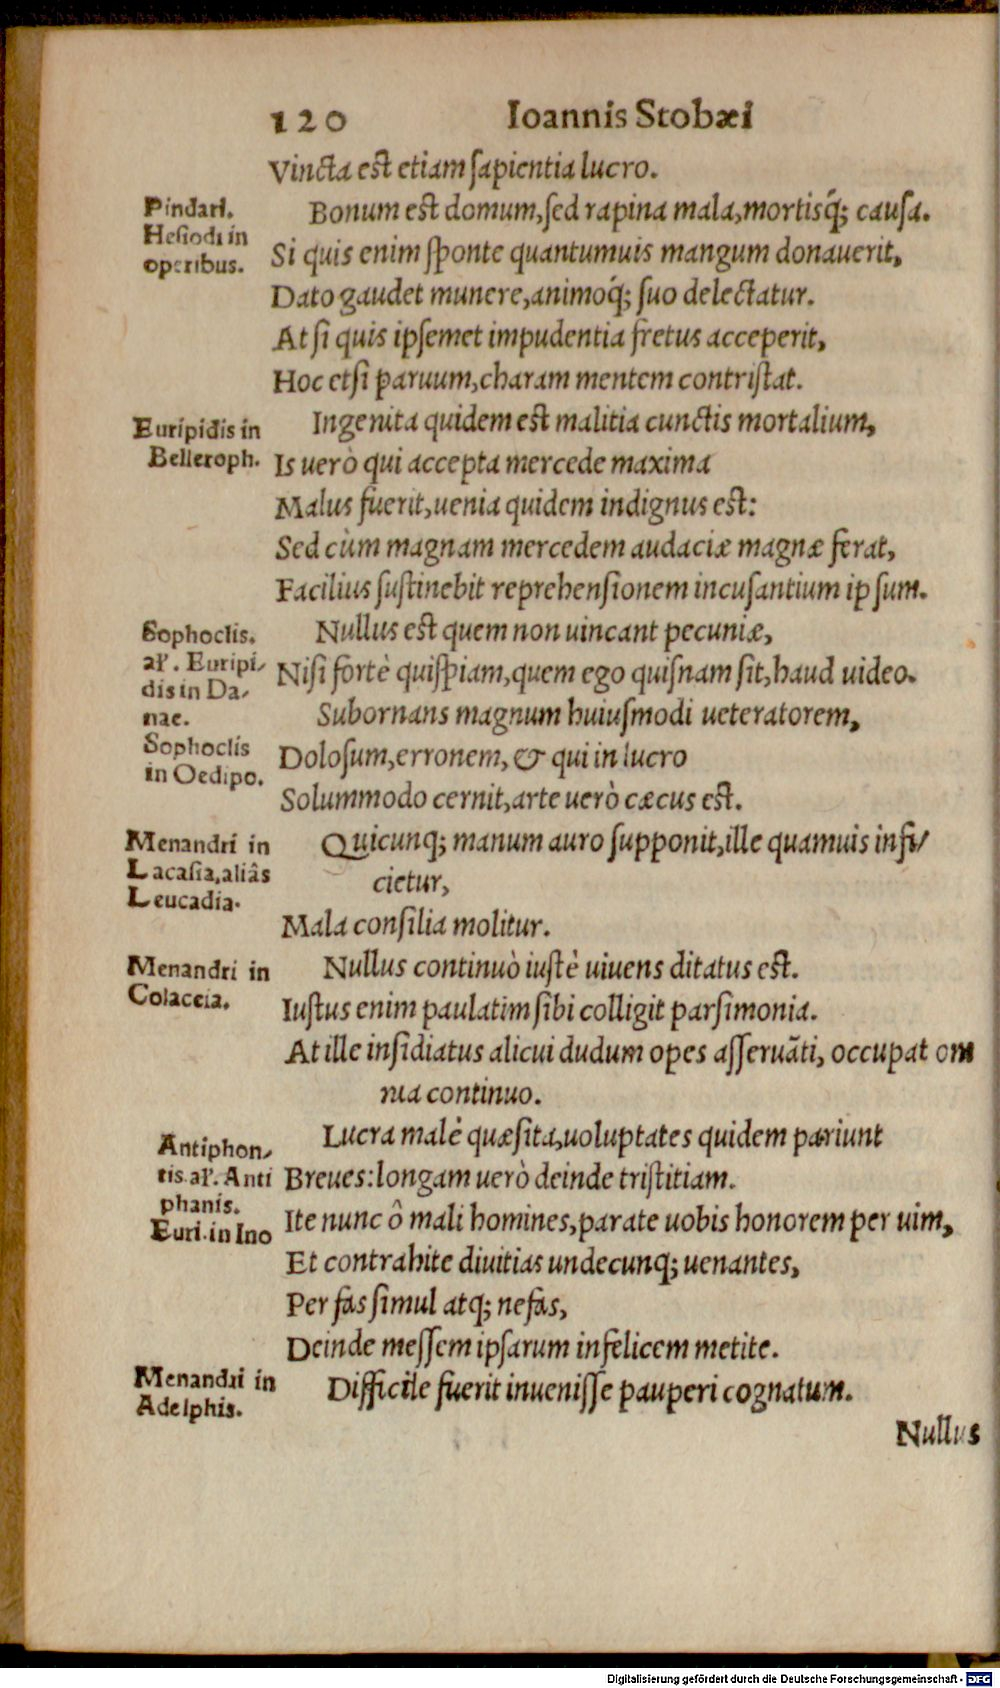 120 Ioannis Stobæi
Vincta est etiam sapientia lucro.
Pindari.
Hesiodi in
operibus.
Bonum est domum, sed rapina mala, mortisq́; causa.
Si quis enim sponte quantumuis mangum donauerit,
Dato gaudet munere, animoq́; suo delectatur.
At si quis ipsemet impudentia fretus acceperit,
Hoc etsi paruum, charam mentem contristat.
Euripidis in
Belleroph.
Ingenita quidem est malitia cunctis mortalium,
Is uerò qui accepta mercede maxima
Malus fuerit, uenia quidem indignus est:
Sed cùm magnam mercedem audaciæ magnæ ferat,
Facilius sustinebit reprehensionem incusantium ipsum.
Sophoclis.
al'. Euripi-
dis in Da-
nae.
Nullus est quem non uincant pecuniæ,
Nisi fortè quispiam, quem ego quisnam sit, haud uideo.
Sophoclis
in Oedipo.
Subornans magnum huiusmodi ueteratorem,
Dolosum, erronem, & qui in lucro
Solummodo cernit, arte uerò cæcus est.
Menandri in
Lacasia, aliâs
Leucadia.
Quicunq; manum auro supponit, ille quamuis infi-
cietur,
Mala consilia molitur.
Menandri in
Colaceia.
Nullus continuò iustè uiuens ditatus est.
Iustus enim paulatim sibi colligit parsimonia.
At ille insidiatus alicui dudum opes asseruãti, occupat om
nia continuo.
Antiphon-
tis. al'. Anti
phanis.
Lucra malè quæsita, uoluptates quidem pariunt
Breues: longam uerò deinde tristitiam.
Euri. in Ino
Ite nunc ô mali homines, parate uobis honorem per uim,
Et contrahite diuitias undecunq; uenantes,
Per fas simul atq; nefas,
Deinde messem ipsarum infelicem metite.
Menandri in
Adelphis.
Difficile fuerit inuenisse pauperi cognatum.
Nullus
Digitalisierung gefördert durch die Deutsche Forschungsgemeinschaft - DFG